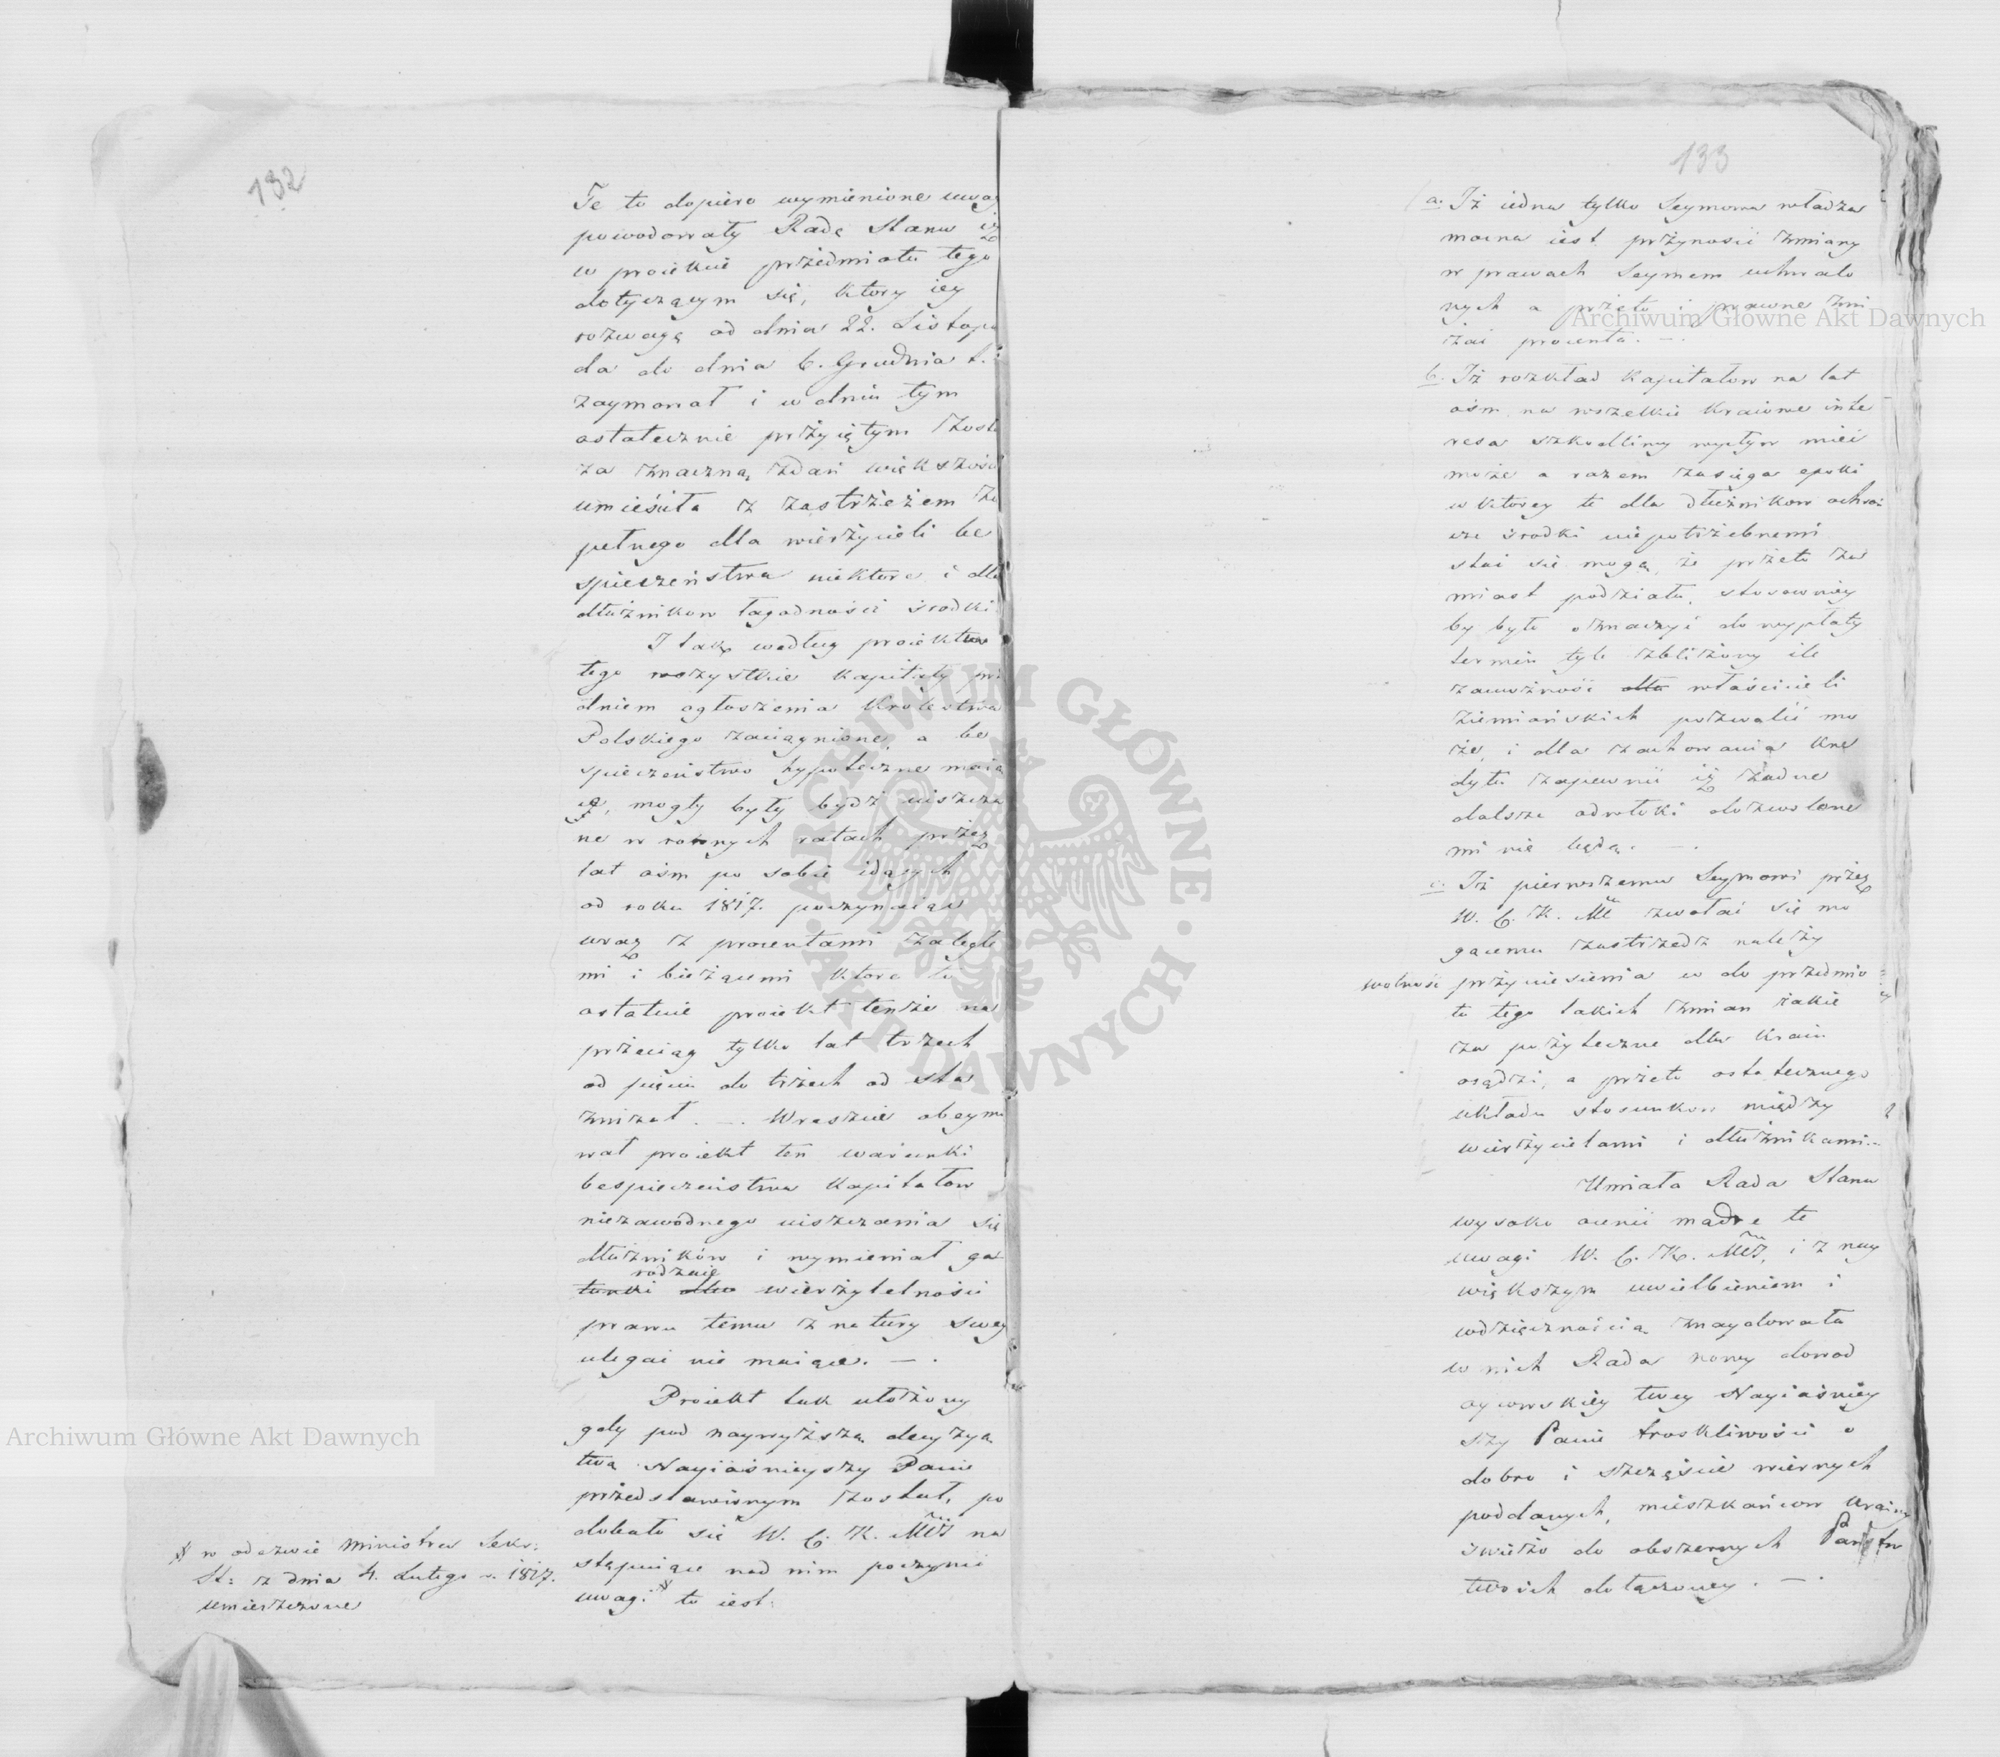 132
Te to dopiero wymienione uwag
powodowały Radę Stanu iż
w proiekcie przedmiotu tego
dotyczącym się, ktory iey
rozwagę od dnia 22. Listopa
da do dnia 6. Grudnia t. r.
zaymował i w dniu tym
ostatecznie przyiętym został
za znaczną zdań większości
umieściła z zastrzeżem zu
pełnego dla wierzycieli be
spieczeństwa niektore i dla
dłużnikow łagodności środki
I tak według proiektu
tego wszystkie kapitały prze
dniem ogłoszenia Krolestwa
Polskiego zaciągnione, a be
spieczeństwo hypoteczne maią
ce, mogły były bydź uiszcza
ne w rownych ratach przez
lat ośm po sobie idących
od roku 1817. poczynaiąc
wraz z procentami zaległe
mi i bieżącemi ktore to
ostatnie proiekt tenże na
przeciąg tylko lat trzech
od pięciu do trzech od sta
zniżał. —. Wreszcie obeymo
wał proiekt ten warunki
bespieczeństwa kapitałow
niezawodnego uiszczania się
dłużników i wymieniał ga
rodzaie
tunki dla wierzytelności
prawu temu z natury swey
ulegać nie maiące. —.
Proiekt tak ułożony
gdy pod naywyższą decyzyą
twą Nayiaśnieyszy Panie
przedstawionym został, po
dobało się W. C. K. Mci na
stępuiące nad nim poczynić
uwagi # to iest:
# w odezwie Ministra Sekr:
St: z dnia 4. Lutego r. 1817.
umieszczone
133
a. Iż iedna tylko Seymowa władza
mocna iest przynosić zmiany
w prawach Seymem uchwalo
nych a przeto i prawne zni
żać procenta. —.
b. Iż rozkład kapitałow na lat
ośm na wszelkie kraiowe inte
resa szkodliwy wpływ mieć
może a razem zasięga epoki
w ktorey te dla dłużnikow ochro
cze środki niepotrzebnemi
stać się mogą, że przeto za
miast podziału, stosowniey
by było oznaczyć do wypłaty
termin tyle zbliżony ile
zamożność dla właścicieli
ziemiańskich pozwalić mo
że, i dla zachowania kre
dytu zapewnić iż żadne
dalsze odwłoki dozwolone
mi nie będą. —.
c. Iż pierwszemu Seymowi przez
W. C. K. Mć zwołać się mo
gącemu zastrzedz należy
wolność przyniesienia w do przedmio
tu tego takich zmian iakie
za pożyteczne dla kraiu
osądzi, a przeto ostatecznego
układu stosunkow między
wierzycielami i dłużnikami.—
Umiała Rada Stanu
wysoko cenić mądre te
uwagi W. C. K. Mci, i z nay
większym uwielbieniem i
wdzięcznością znaydowała
w nich Rada nowy dowod
oycowskiey twey Nayiaśniey
szy Panie troskliwości o
dobro i szczęście wiernych
poddanych, mieszkańcow krainy
świeżo do obszernych Państw
twoich dołączoney. —.